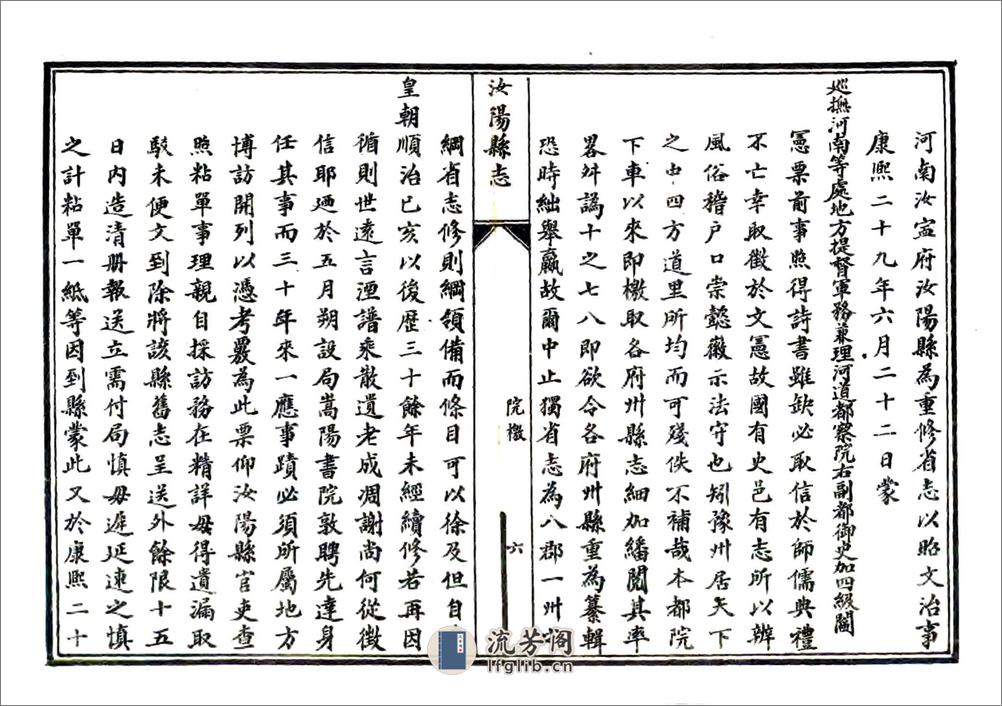 河南汝寧府汝陽縣為重修省志以昭文治事
康熙二十九年六月二十二日蒙
巡撫河南等處地方提督軍務兼理河道都察院右副都御史加四級閻
憲票前事照得詩書雖缺必取信於師儒典禮
不亡幸取徵於文憲故國有史邑有志所以辨
風俗稽户口崇懿徽示法守也矧豫州居天下
之中四方道里所均而可殘佚不補哉本都院
下車以來即檄取各府州縣志細加繙閱其率
畧舛譌十之七八即欲令各府州縣重為纂輯
恐時絀舉贏故爾中止獨省志為八郡一州
汝陽縣志
院檄
六
綱省志修則綱領備而條目可以徐及但自
皇朝順治己亥以後歷三十餘年未經續修若再因
循則世遠言湮譜乘散遺老成凋謝尚何從徵
信耶廼於五月朔設局嵩陽書院敦聘先達身
任其事而三十年來一應事蹟必須所屬地方
博訪開列以憑考覈為此票仰汝陽縣官吏查
照粘單事理親自採訪務在精詳毋得遺漏取
駁未便文到除將該縣舊志呈送外餘限十五
日内造清册報送立需付局慎毋遲延速之慎
之計粘單一紙等因到縣蒙此又於康熙二十
流芳阁
lfglib.cn